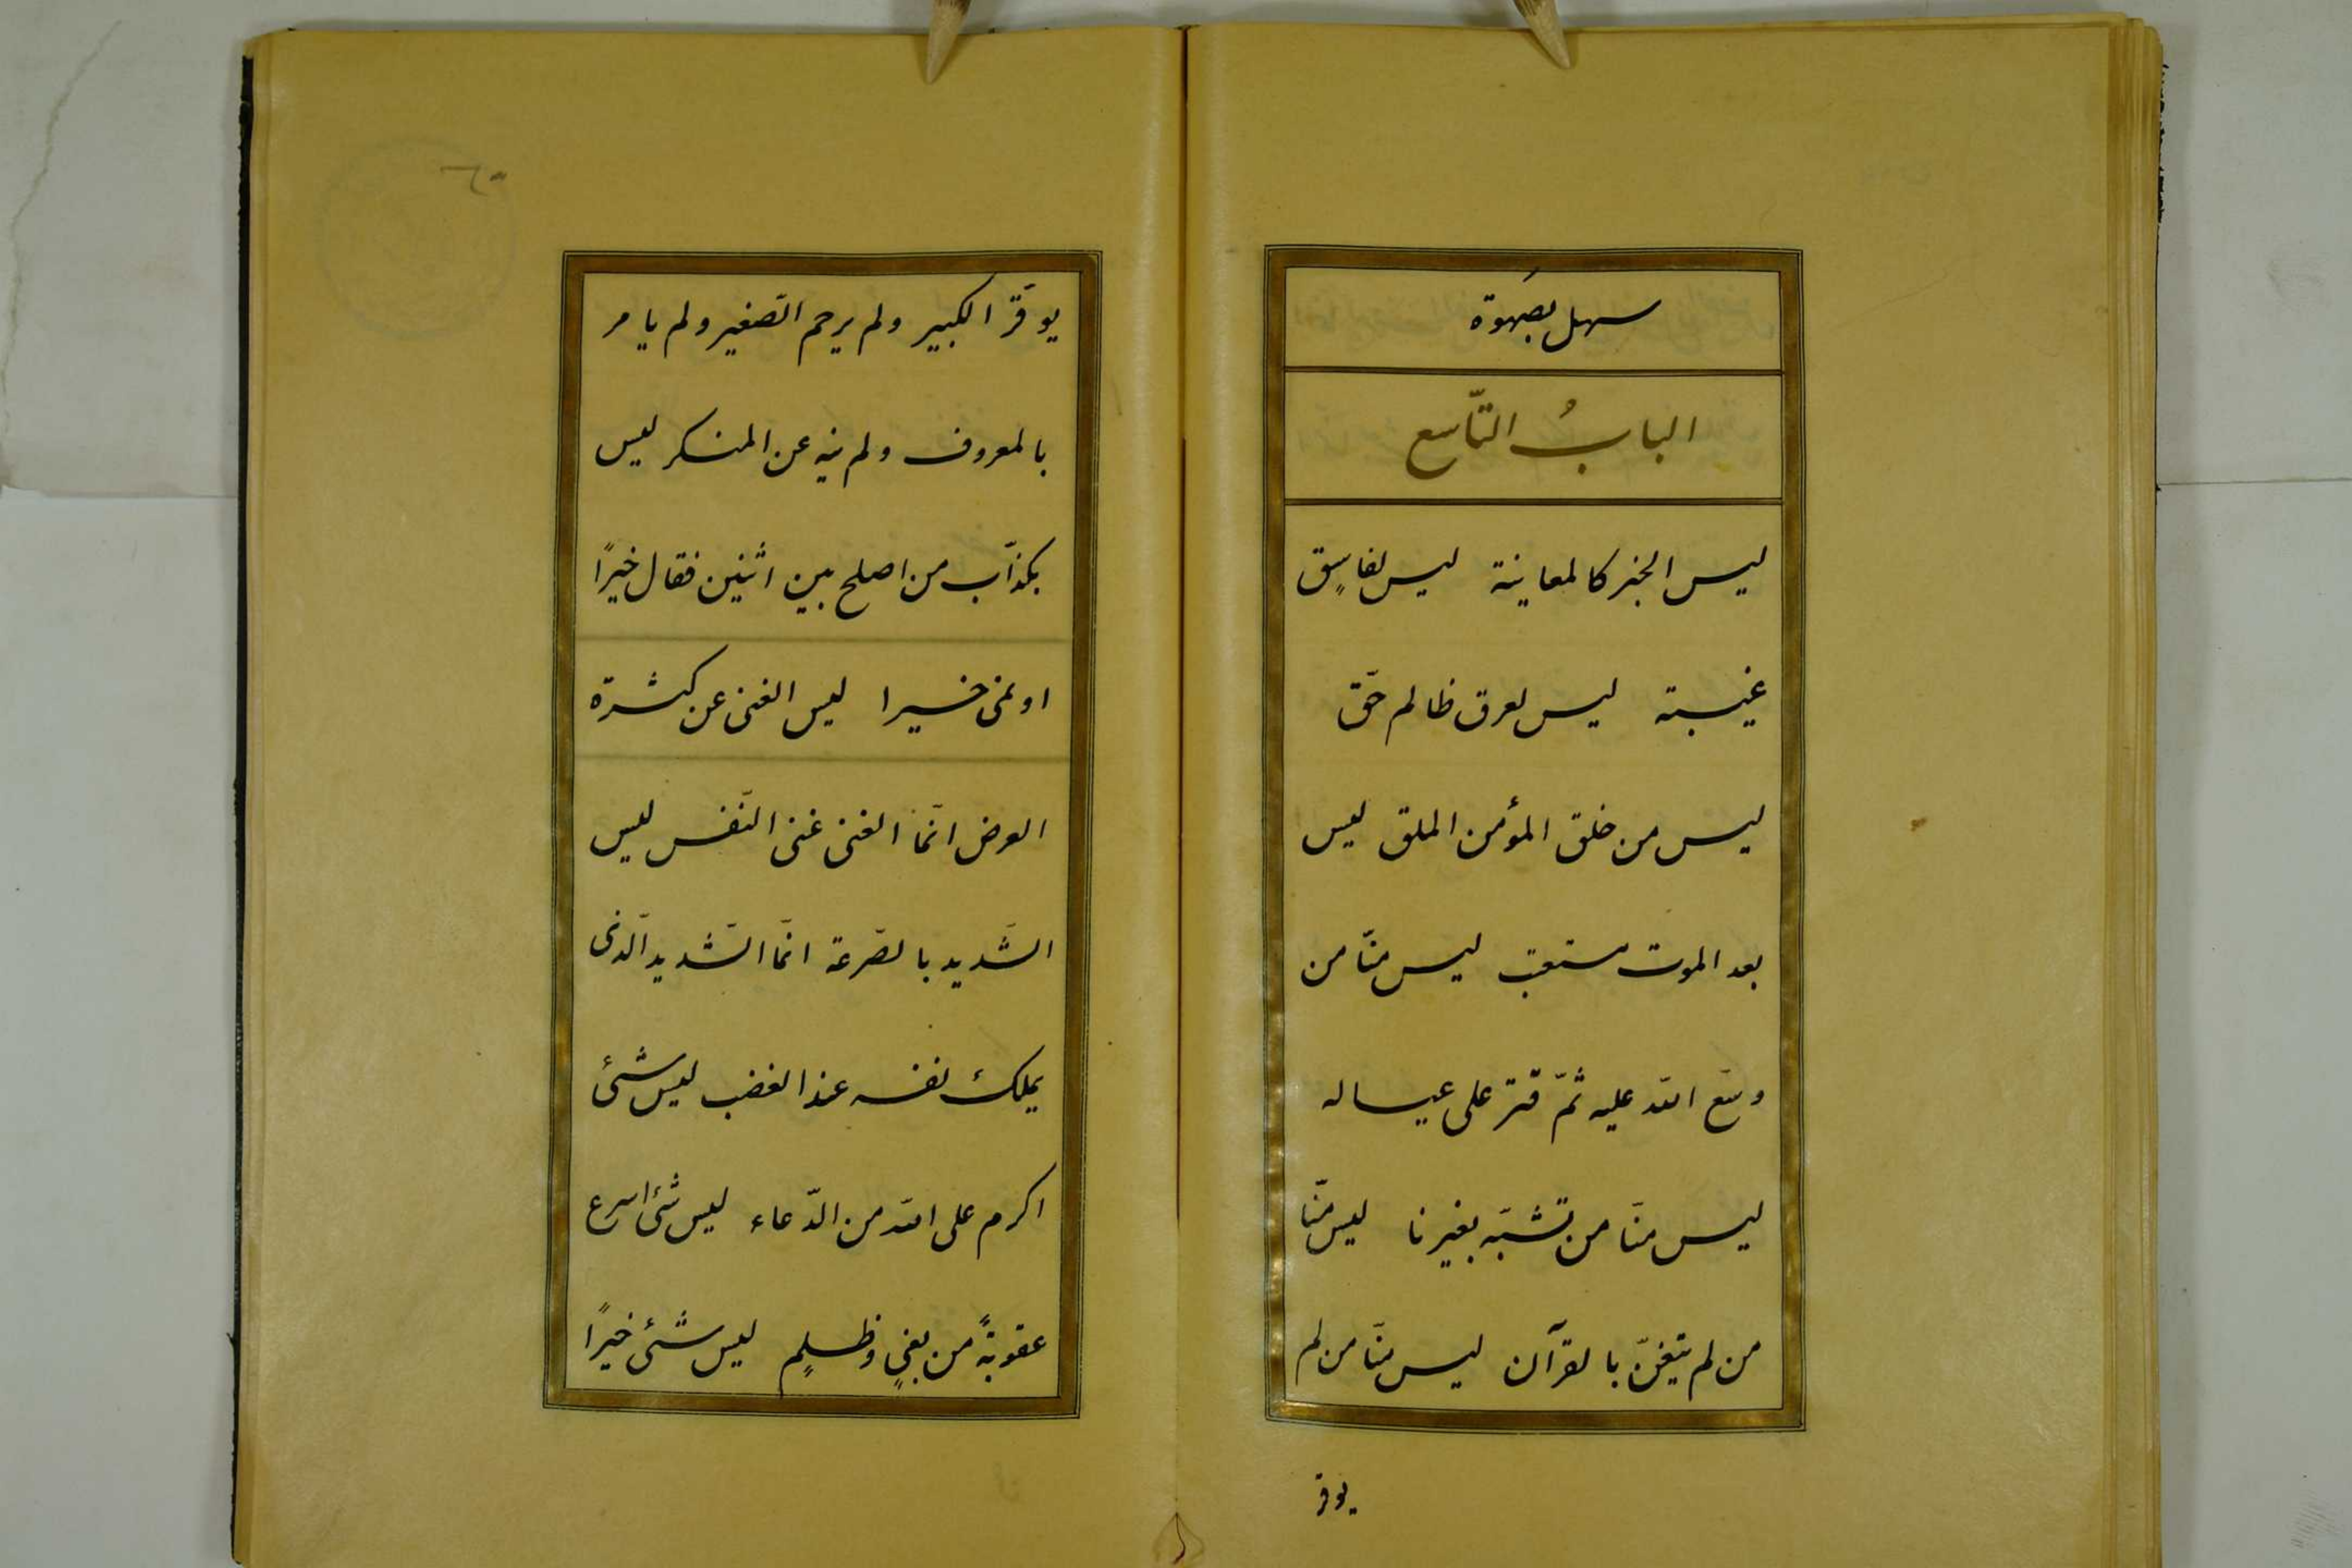 سهل بصَهوة
البابُ التّاسع
ليس الخبر كالمعاينة ليس لفاسِق
غيبته ليس لعرق ظالم حّق
ليس من خلق المؤمن الملق ليس
بعد الموت مستعتب ليس منّا من
وسّع الله عليه ثمّ قتر على عياله
ليس منّا من تشبّه بغيرنا ليس منّا
من لم يتغنّ بالقرآن ليس منّا من لم
يوقر
يوقّر الكبير ولم يرحم الصّغير ولم يامر
بالمعروف ولم ينه عن المنكر ليس
بكذّاب من اصلح بين اثنين فقال خيراً
اونمى خيرا ليس الغنى عن كثرة
العرض انّما الغنى غنى النّفس ليس
الشّديد بالصّرعة انّما الشّديد الّذى
يملك نفسه عند الغضب ليس شئ
اكرم على الله من الدّعاء ليس شئ اسرع
عقوبةً من بغىٍ وظلمٍ ليس شئ خيراً